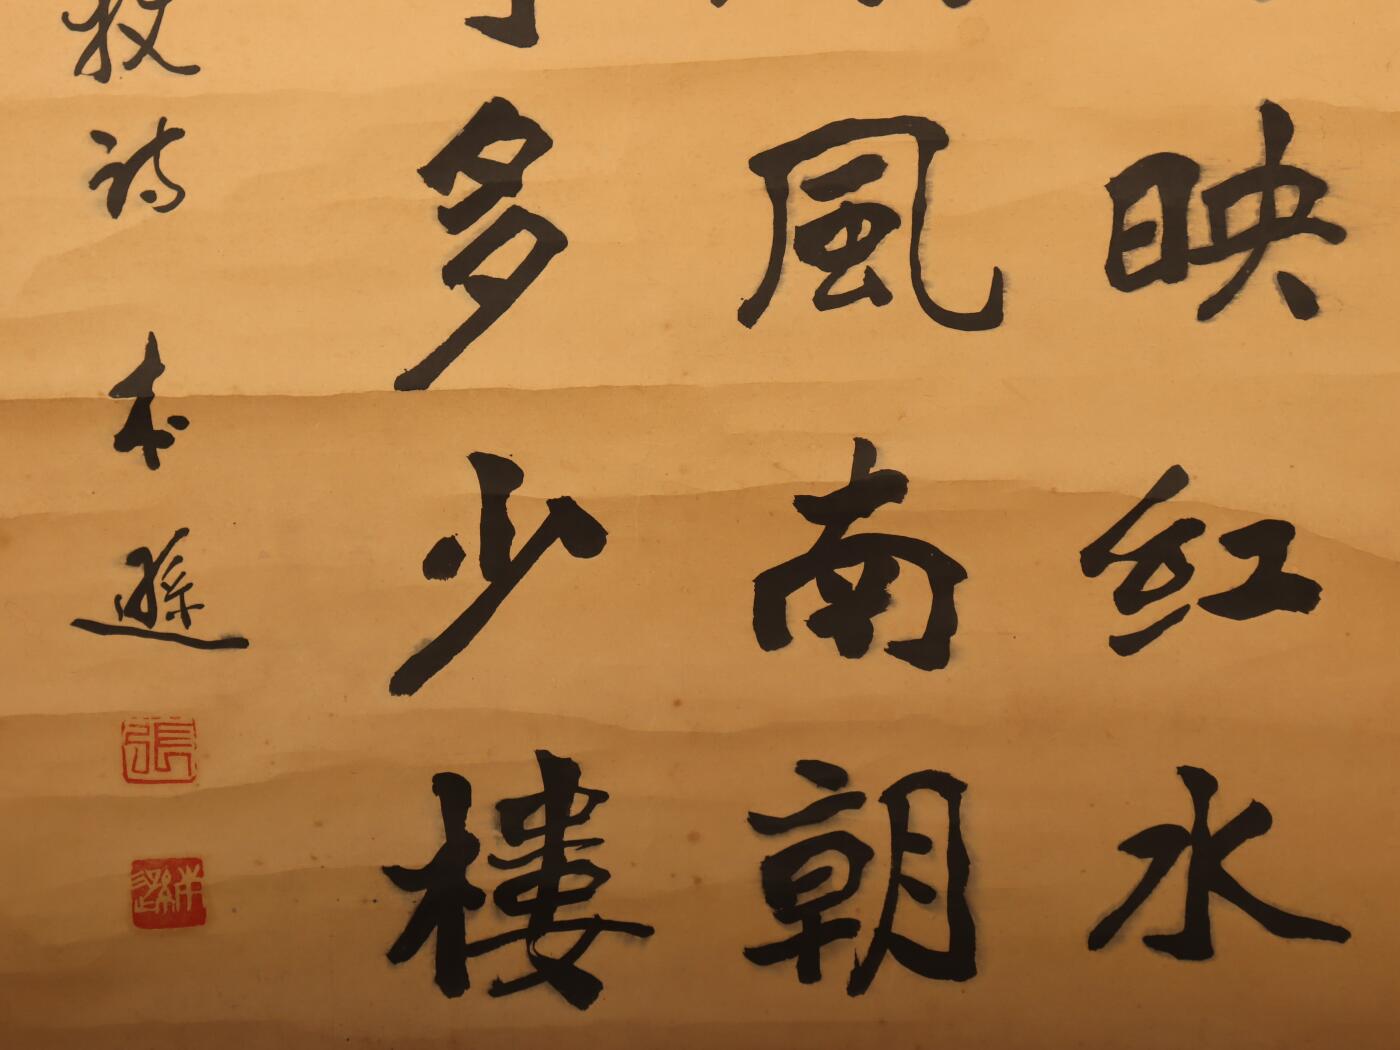 映紅水
風南朝
多少樓
牧詩 本遜
張